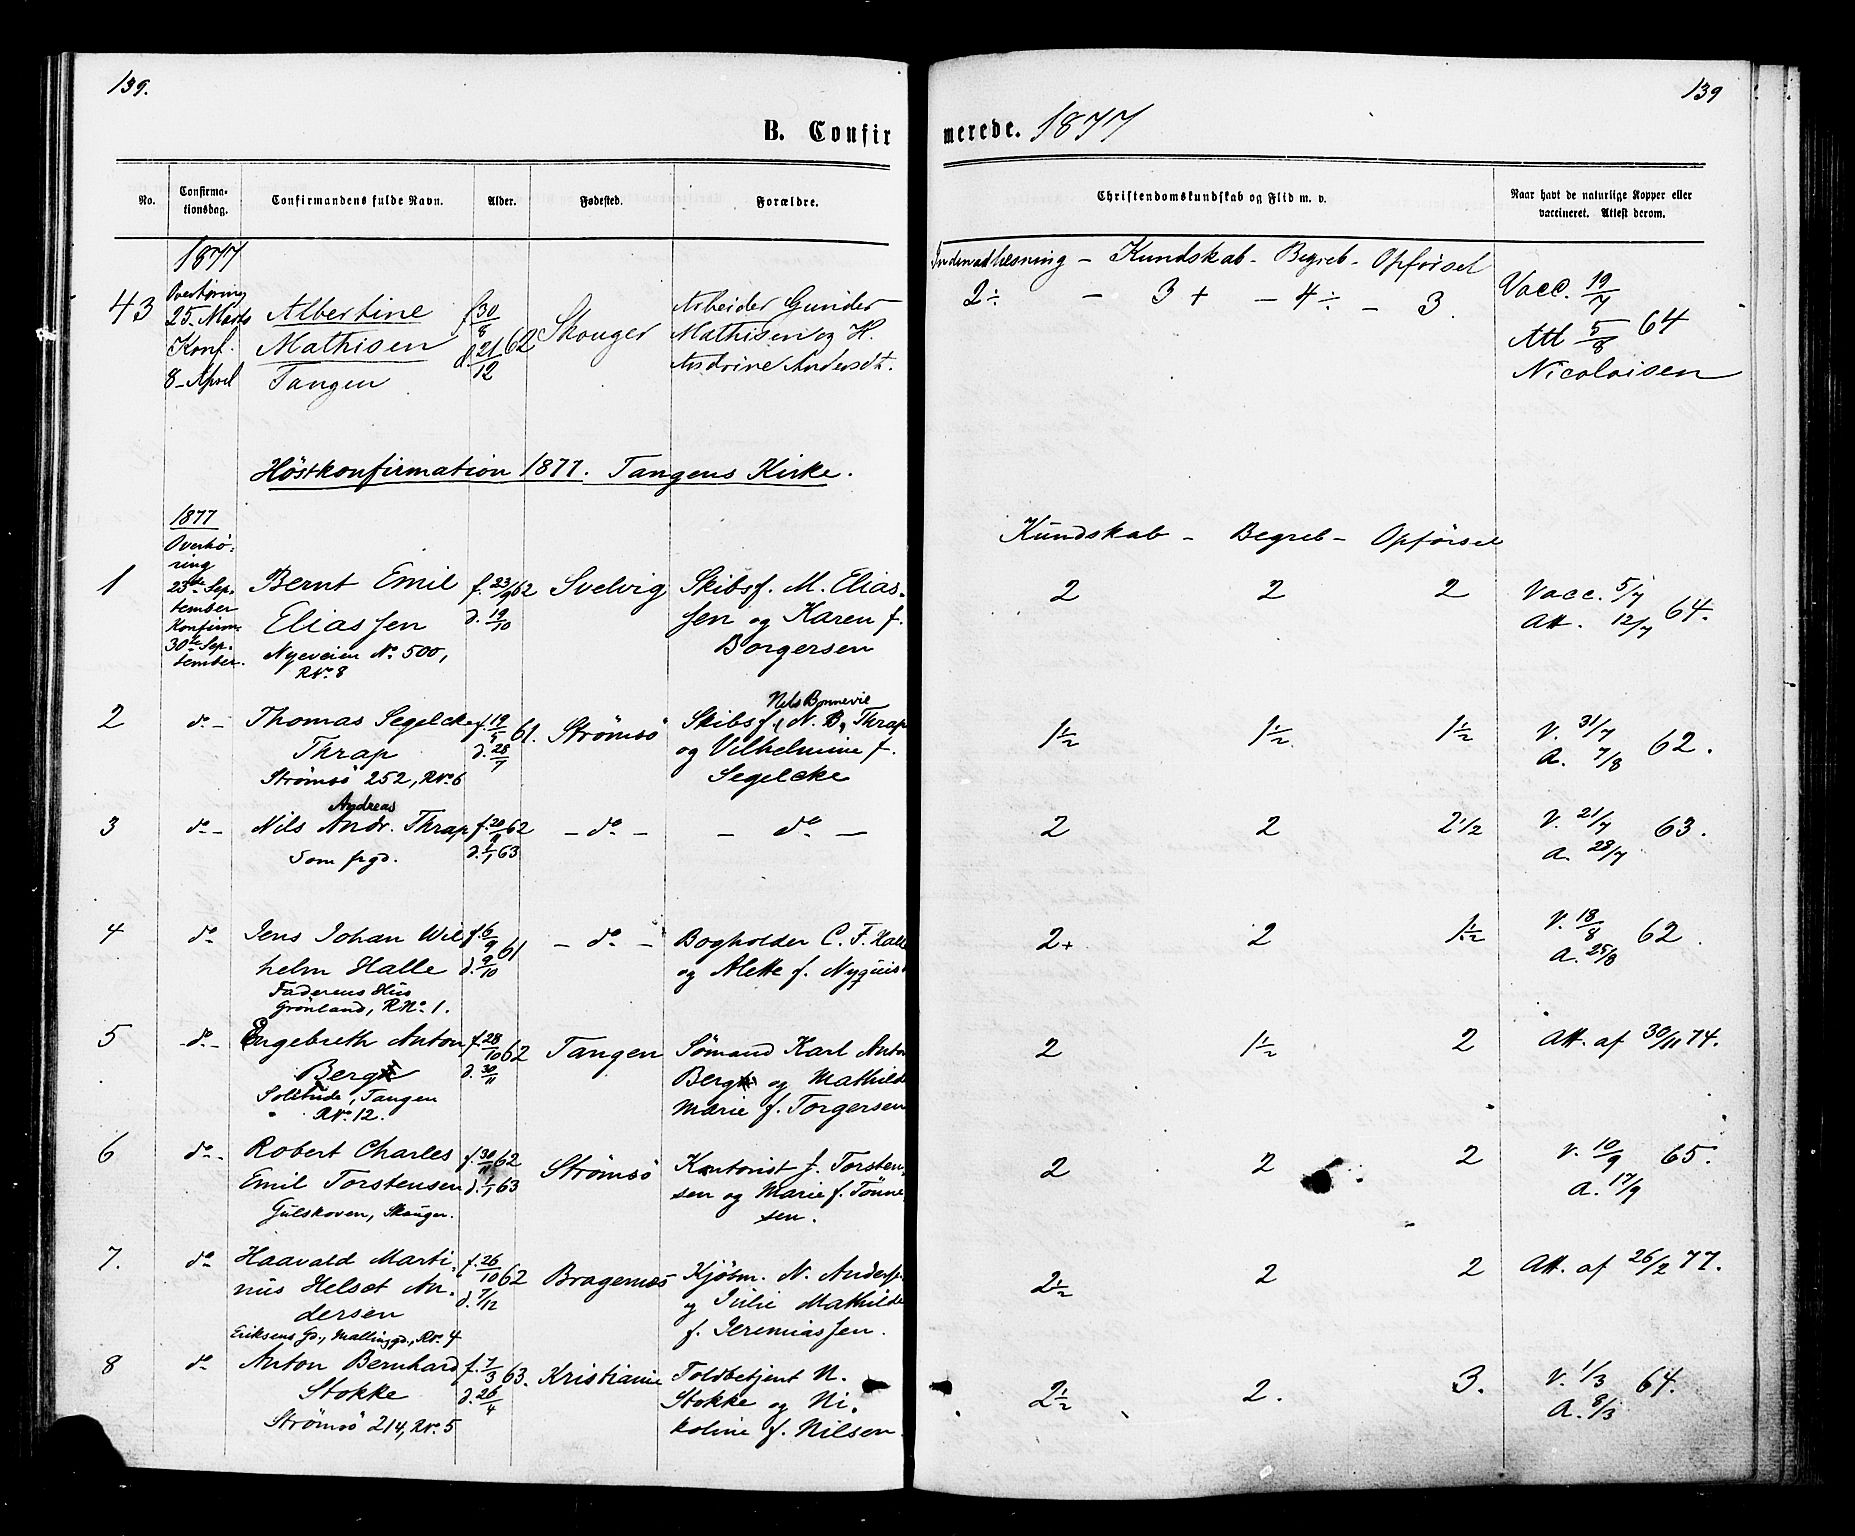 139.
139
B. Confir
merede. 1877
No.
Confirma-
tionsdag.
Confirmandens fulde Navn.
Alder.
Fødested.
Forældre.
Christendomskundskab og Flid m. v.
Naar havt de naturlige Kopper eller
vaccineret. Attest derom.
1877
Indenadlæsning – Kundskab – Begreb – Opförsel
43
Overhöring
25– Marts
Konf.
8– April
Albertine
Mathisen
Tangen
f 30/8
d 21/12 62
Skouger
Arbeider Gunder
Mathisen og H.
Andrine Andersdt.
2÷ – 3+ – 4÷ – 3
Vacc. 19/7
Att 5/8 64
Nicolaisen
Höstkonfirmation 1877. Tangens Kirke.
Kundskab – Begreb – Opförsel
1877
1
Overhö-
ring
23de Sep-
tember
Konfirm.
30te Sep-
tember.
Bernt Emil
Eliassen
Nyeveien No 500,
RNo 8
f. 23/9 62
d. 19/10
Svelvig
Skibsf. M. Elias-
sen og Karen f.
Borgersen
2 2 2
Vacc. 5/7
Att. 12/7 64.
2
do –
Thomas Segelcke
Thrap
Strömsö 252, RNo 6
f. 19/5 61.
d. 28/7
Strömsö
Nels Bonnevil
Skibsf. N. B. Thrap
og Vilhelmine f.
Segelcke
1½ 1½ 1½
V. 31/7
A. 7/8 62.
3
do –
Andreas
Nils Andr. Thrap
Som frgd.
f. 20/9 62
d. 1/1 63
– do –
– do –
2 2 2½
V. 21/7
A. 28/7 63.
4
do
Jens Johan Wil
helm Halle
Faderens Hus
Grönland, RNo 1.
f. 6/9 61
d. 9/10
– do –
Bogholder C. F. Halle
og Alette f. Nyquist
2+ 2 1½
V. 18/8
A. 25/8 62.
5
– do –
Engebreth Anton
Berg
Solitude, Tangen
RNo 12.
f. 28/10 62
d. 30/11
Tangen
Sömand Karl Anton
Berg og Mathilde
Marie f. Torgersen
2 1½ 2
Att. af 30/11 74.
6
do –
Robert Charles
Emil Torstensen
Gulskoven, Skouger.
f. 30/11 62
d. 1/1 63
Strömsö
Kontorist J. Torsten-
sen og Marie f. Tönne
sen.
2 2 2
V. 10/9
A. 17/9 65.
7.
do
Haavald Marti-
nius Helset An-
dersen
Eriksens Gd., Mallinggd., RNo 4
f. 26/10 62
d. 7/12
Bragernæs
Kjöbm. N. Anders.
og Julie Mathilde
f. Jeremiassen.
2½ 2 2
Att. af 26/2 77.
8
do
Anton Bernhard
Stokke
Strömsö 214, RNo 5
f. 7/3 63.
d. 26/4
Kristiania
Toldbetjent N.
Stokke og Ni-
koline f. Nilsen.
2½ 2. 3.
V. 1/3
A. 8/3 64.